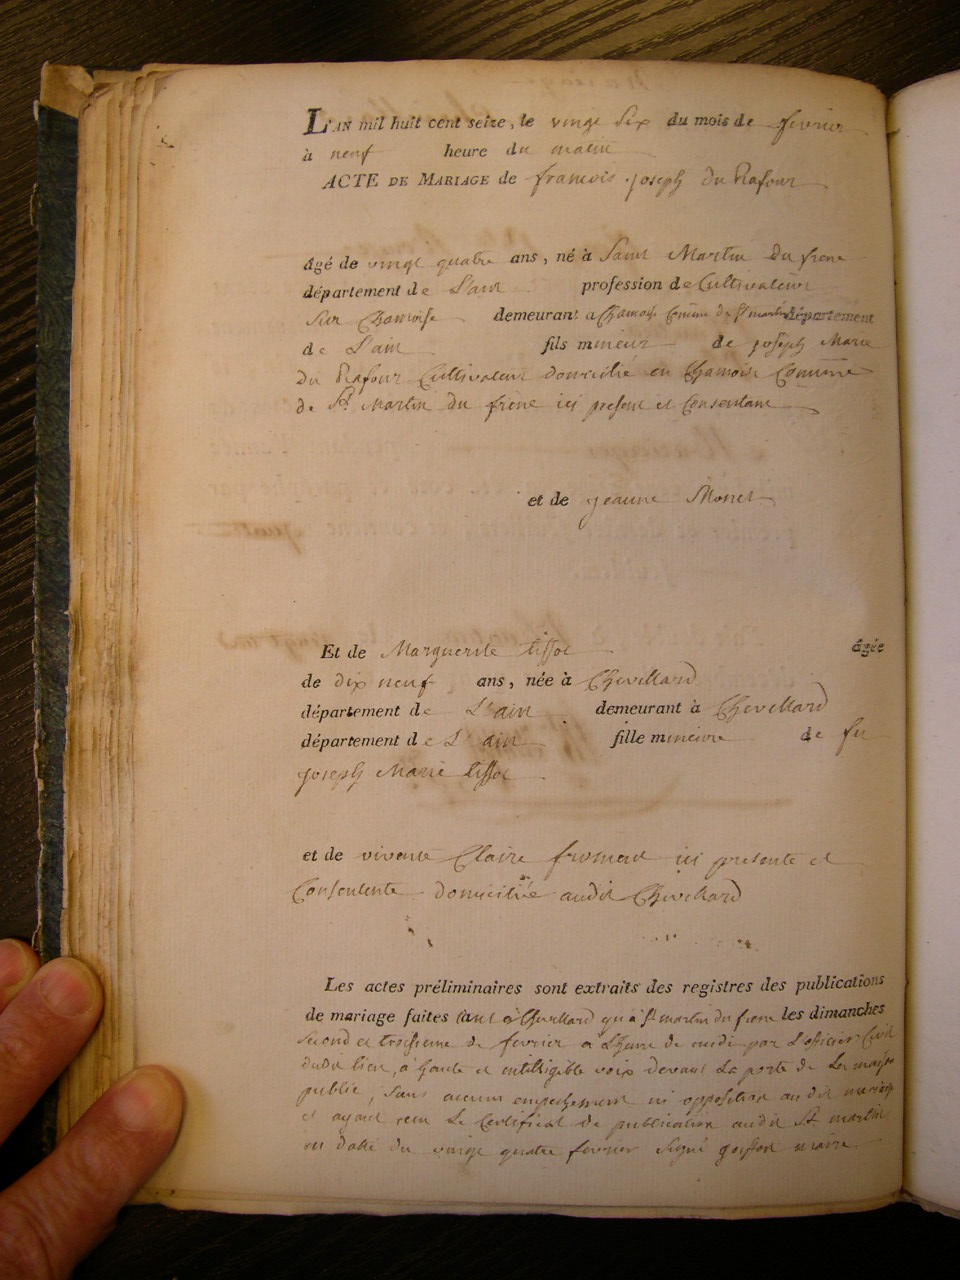 L'AN mil huit cent seize, le vingt Six du mois de fevrier
à neuf heure du matin
ACTE DE MARIAGE de francois joseph du Rafour
âgé de vingt quatre ans, né à Saint Martin du frene
département de L'ain profession de Cultivateur
Sur Chamoise demeurant a Chamois Comune de St martin département
de L'ain fils mineur de joseph Marie
du Rafour Cultivateur domicilié en Chamois Commune
de St Martin du frêne ici present et Consentant
et de jeanne Monet
Et de Marguerite tissot âgée
de dix neuf ans, née à Chevillard
département de L'ain demeurant à Chevillard
département de L'ain fille mineure de fu
joseph Marie tissot
et de vivante Claire froment ici presente et
Consentente domiciliée audit Chevillard
Les actes préliminaires sont extraits des registres des publications
de mariage faites tant à Chevillard qu'à St martin du frene les dimanches
Second et troisieme de fevrier a L'heure de midi par L'officier Civil
dudit lieu, à haute et intilligible voix devant La porte de La maison
publié, Sans aucun empechement ni opposition au dit mariage
et ayant reçu Le Certificat de publication audit St martin
en date du vingt quatre fevrier Signé maire